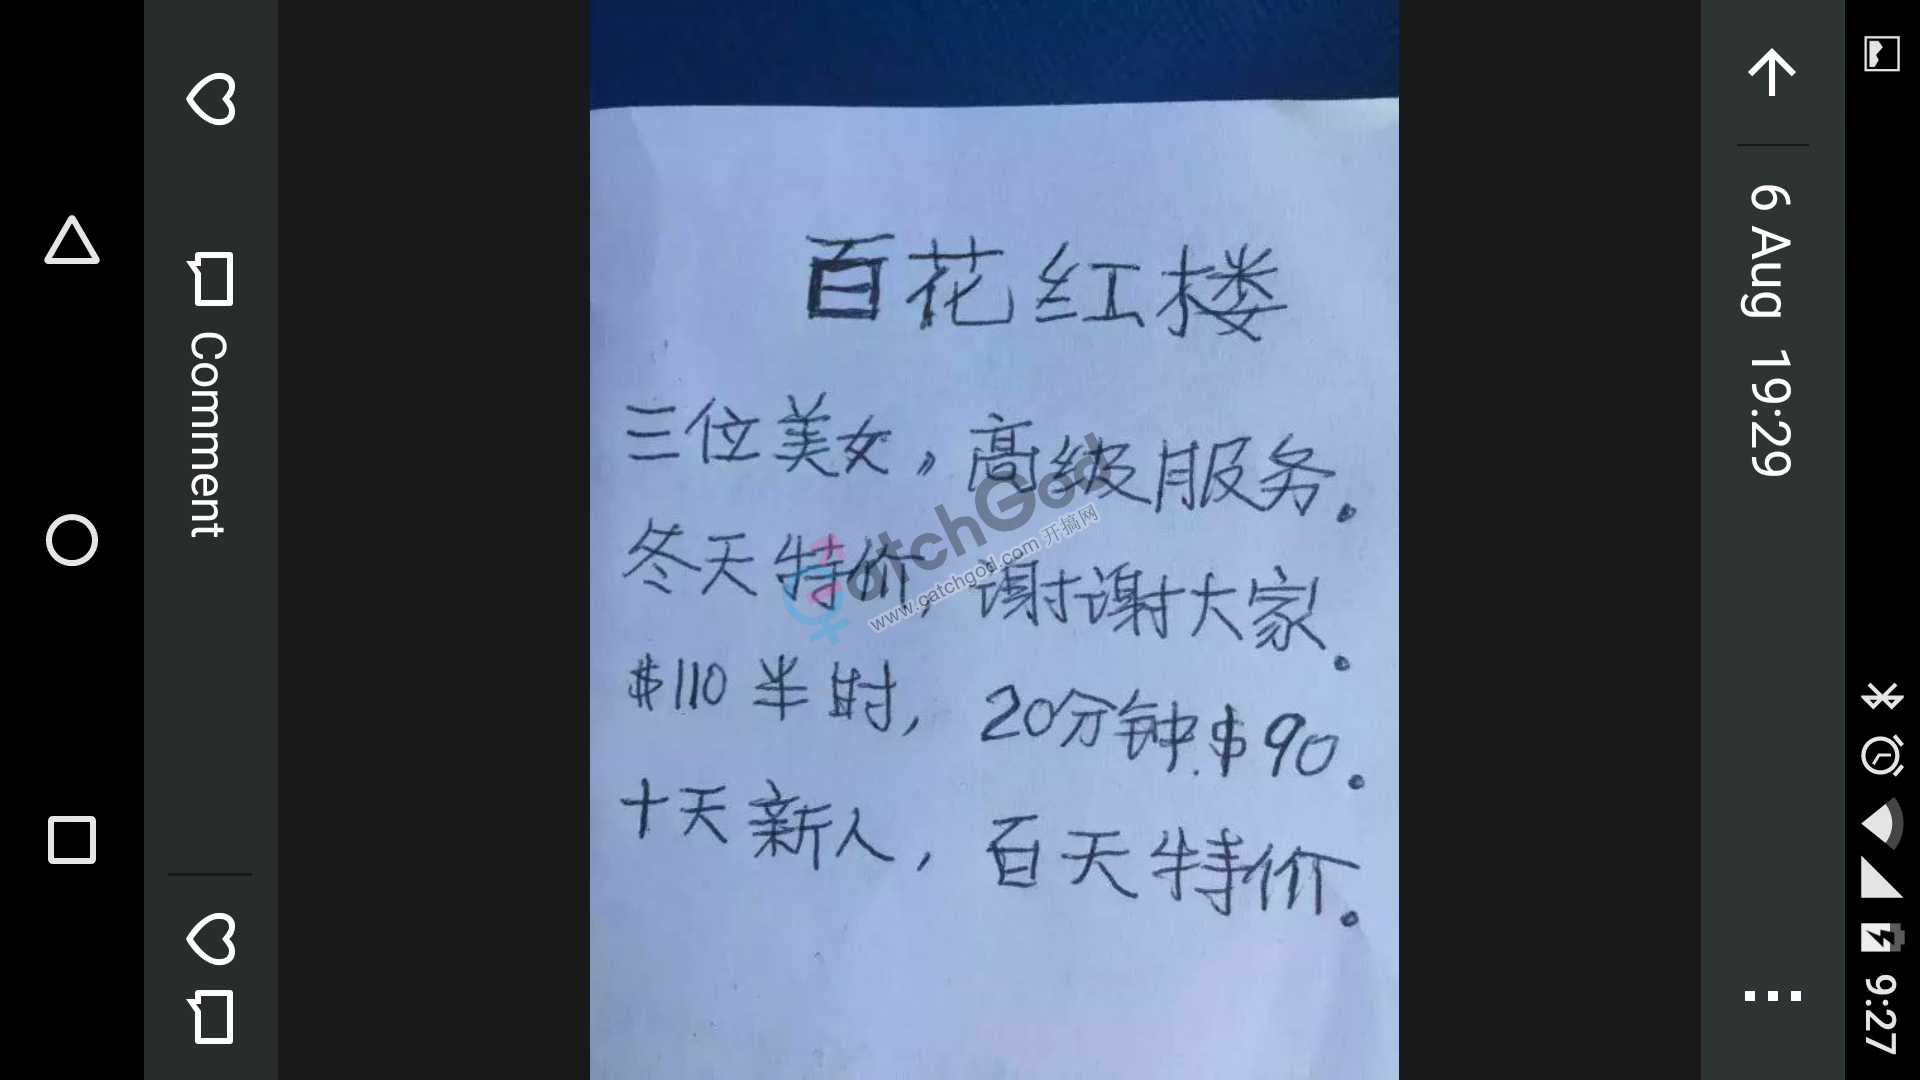 百花红楼
三位美女，高级服务。
冬天特价，谢谢大家。
$110 半时，20分钟.$90.
十天新人，百天特价。
CatchGod
www.catchgod.com 开搞网
6 Aug 19:29
Comment
9:27